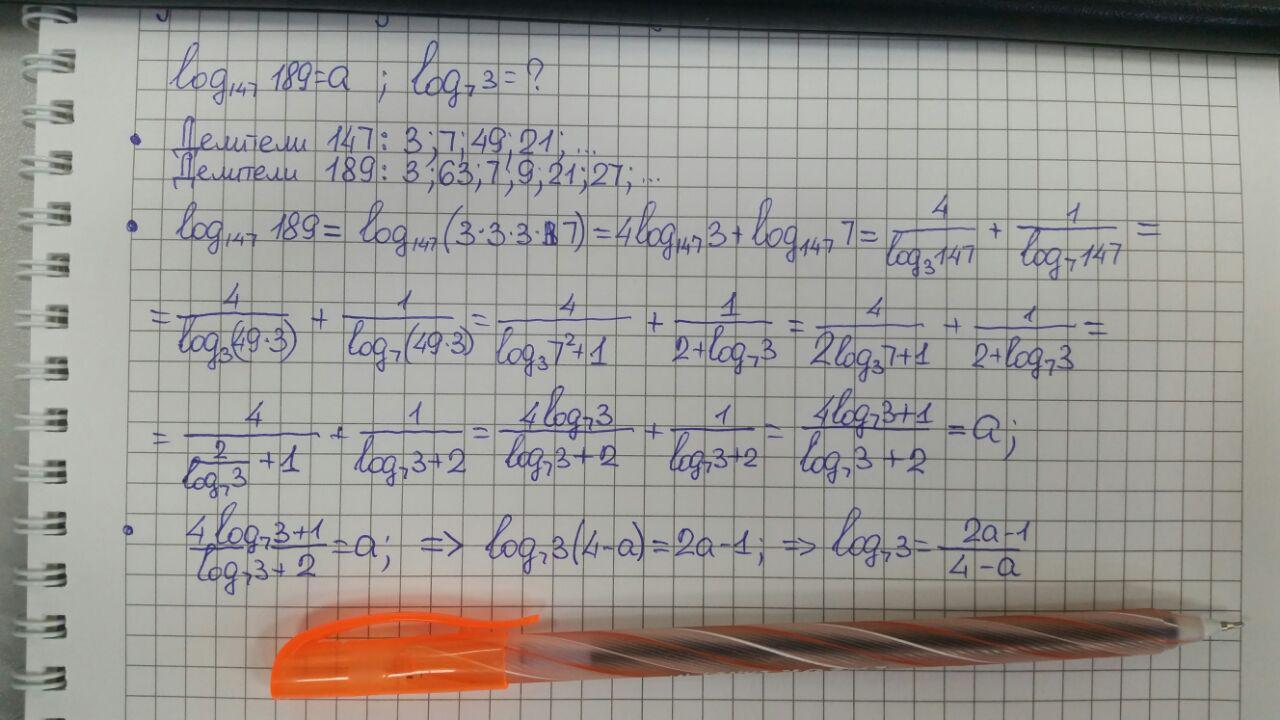 log₁₄₇ 189 = a ; log₇3 = ?
• Делители 147: 3; 7; 49; 21; ...
Делители 189: 3; 63; 7; 9; 21; 27; ...
• log₁₄₇ 189 = log₁₄₇(3·3·3·7) = 4log₁₄₇3 + log₁₄₇7 = 4/(log₃147) + 1/(log₇147) =
= 4/(log₃(49·3)) + 1/(log₇(49·3)) = 4/(log₃7²+1) + 1/(2+log₇3) = 4/(2log₃7+1) + 1/(2+log₇3) =
= 4/(2/(log₇3) + 1) + 1/(log₇3+2) = (4log₇3)/(log₇3+2) + 1/(log₇3+2) = (4log₇3+1)/(log₇3+2) = a;
• (4log₇3+1)/(log₇3+2) = a; => log₇3(4-a) = 2a-1; => log₇3 = (2a-1)/(4-a)